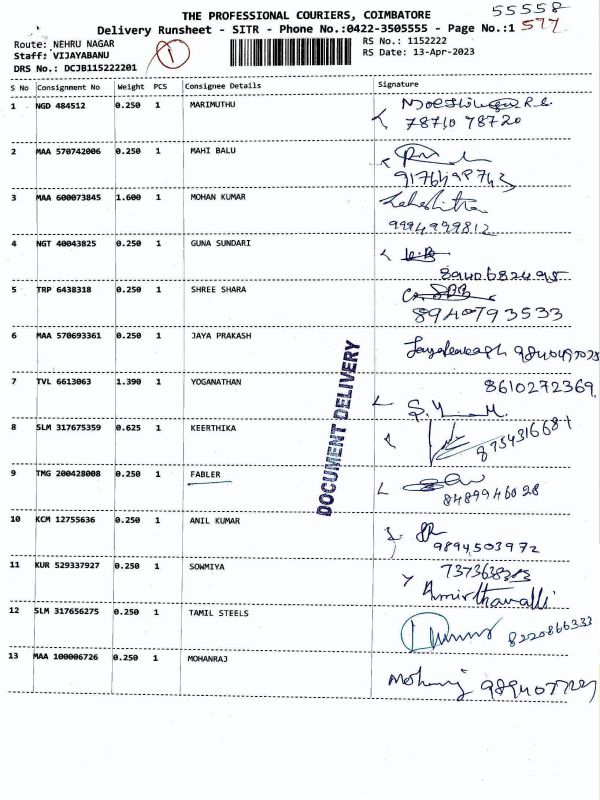 THE PROFESSIONAL COURIERS, COIMBATORE 55558
Delivery Runsheet - SITR - Phone No.:0422-3505555 - Page No.:1 577
Route: NEHRU NAGAR RS No.: 1152222
Staff: VIJAYABANU 1 RS Date: 13-Apr-2023
DRS No.: DCJB115222201
S No Consignment No Weight PCS Consignee Details Signature
1 NGD 484512 0.250 1 MARIMUTHU
78710 78720
2 MAA 570742006 0.250 1 MAHI BALU
9176498743
3 MAA 600073845 1.600 1 MOHAN KUMAR
9994999812
4 NGT 40043825 0.250 1 GUNA SUNDARI
8940682495
5 TRP 6438318 0.250 1 SHREE SHARA
8940793533
6 MAA 570693361 0.250 1 JAYA PRAKASH
7 TVL 6613063 1.390 1 YOGANATHAN 8610272369
8 SLM 317675359 0.625 1 KEERTHIKA
DOCUMENT DELIVERY
9 TMG 200428008 0.250 1 FABLER
8489946028
10 KCM 12755636 0.250 1 ANIL KUMAR
9894503972
11 KUR 529337927 0.250 1 SOWMIYA
Amirthavalli
12 SLM 317656275 0.250 1 TAMIL STEELS
8220866333
13 MAA 100006726 0.250 1 MOHANRAJ